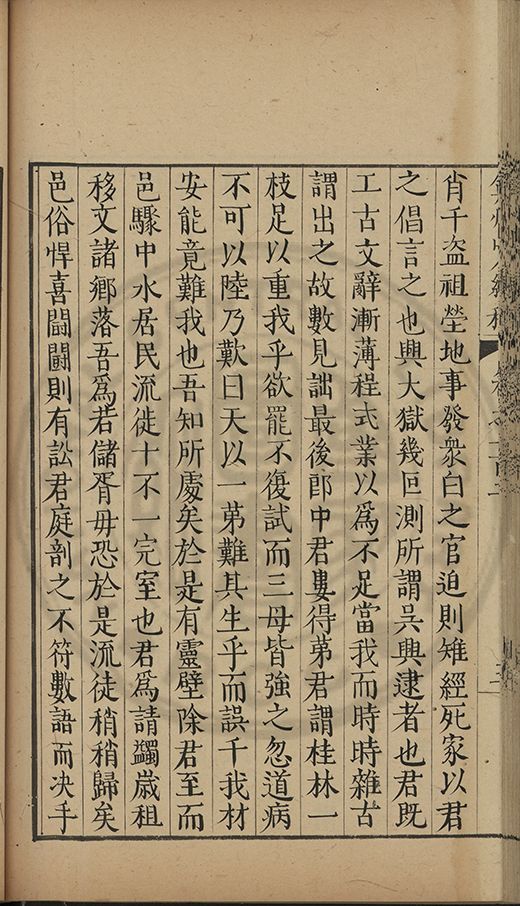 肖千盜祖塋地事發衆白之官迫則雉經死家以君
之倡言之也興大獄幾叵測所謂吳興逮者也君既
工古文辭漸薄程式業以爲不足當我而時時雜古
謂出之故數見詘最後郎中君婁得弟君謂桂林一
枝足以重我乎欲罷不復試而三母皆強之忽道病
不可以陸乃歎曰天以一第難其生乎而誤千我材
安能竟難我也吾知所處矣於是有靈壁除君至而
邑驟中水居民流徙十不一完室也君爲請蠲歲租
移文諸鄉落吾爲若儲胥毋恐於是流徒稍稍歸矣
邑俗悍喜鬪鬪則有訟君庭剖之不符數語而决手